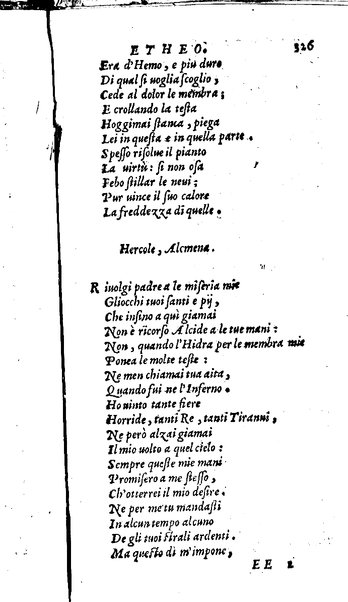 ETHEO. 326
Era d'Hemo, e piu duro
Di qual si uoglia scoglio,
Cede al dolor le membra;
E crollando la testa
Hoggimai stanca, piega
Lei in questa e in quella parte.
Spesso risolue il pianto
La uirtù: si non osa
Febo stillar le neui;
Pur uince il suo calore
La freddezza di quelle.
Hercole, Alcmena.
Riuolgi padre a le miseria mie
Gliocchi tuoi santi e pij,
Che insino a quì giamai
Non è ricorso Alcide a le tue mani:
Non, quando l'Hidra per le membra mie
Ponea le molte teste:
Ne men chiamai tua aita,
Quando fui ne l'Inferno.
Ho uinto tante fiere
Horride, tanti Re, tanti Tiranni,
Ne però alzai giamai
Il mio uolto a quel cielo:
Sempre queste mie mani
Promisero a me stesso,
Ch'otterrei il mio desire.
Ne per me tu mandasti
In alcun tempo alcuno
De gli tuoi strali ardenti.
Ma questo dì m'impone,
EE 2